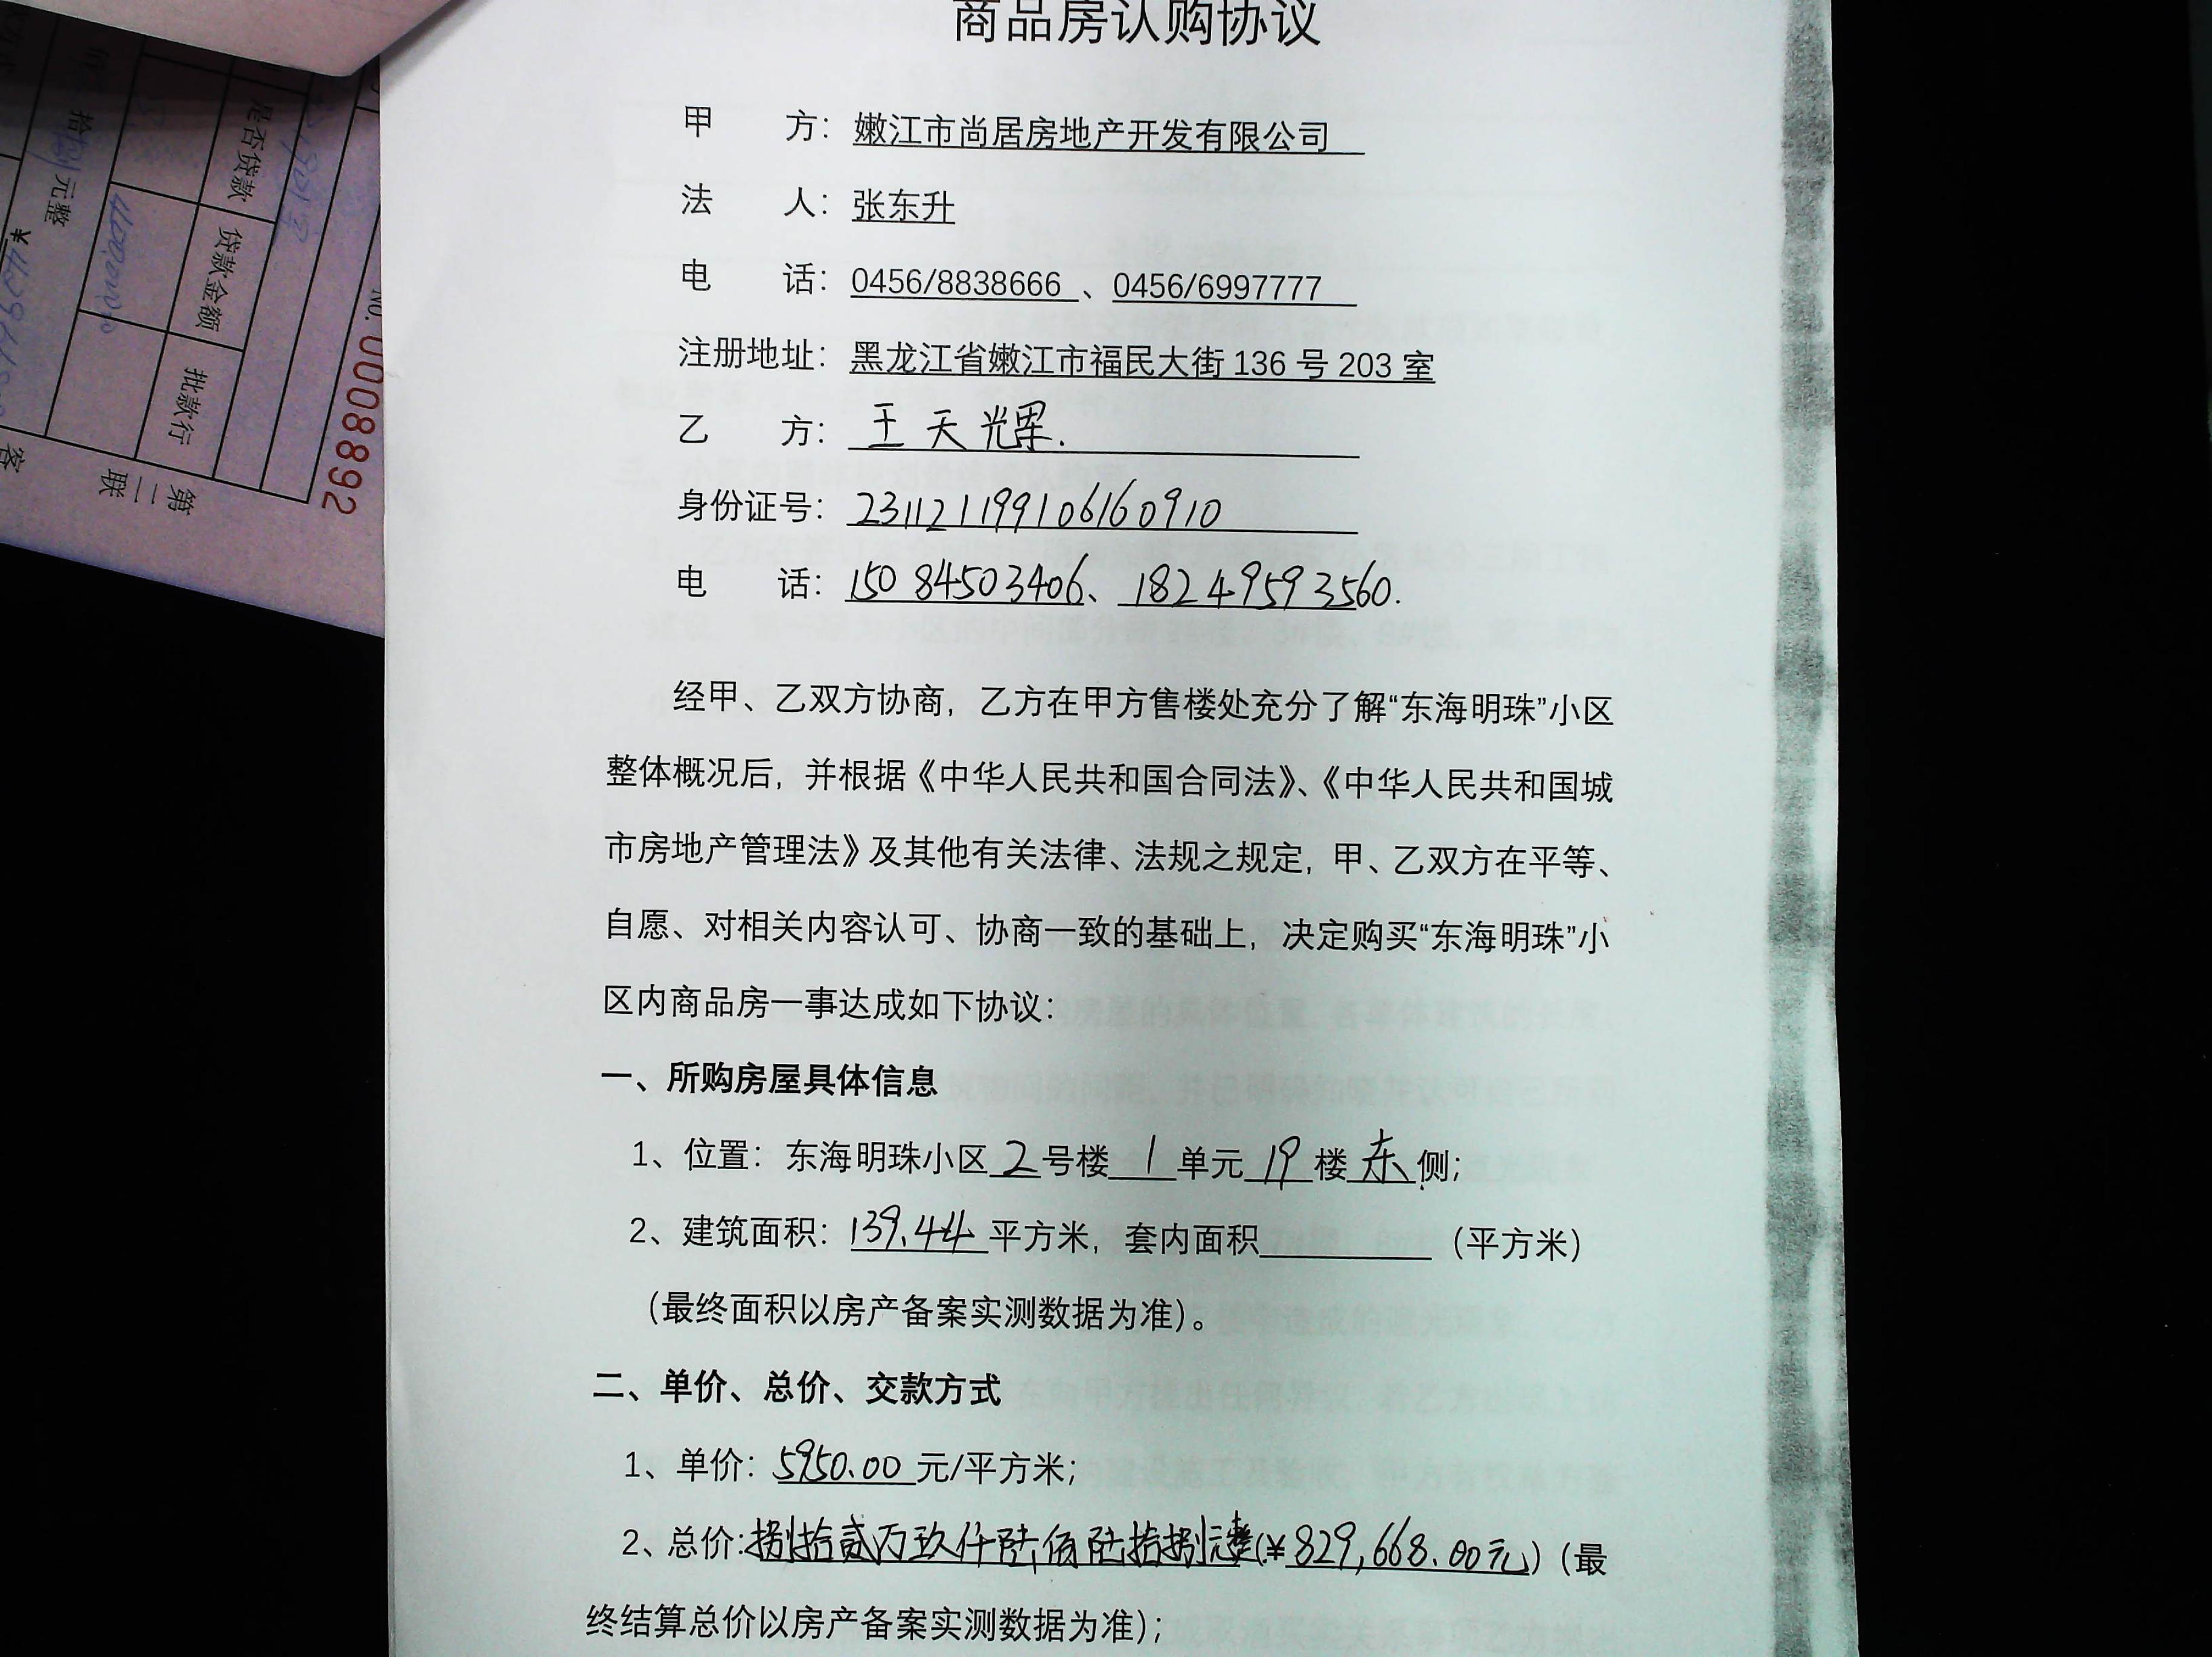 商品房认购协议
甲 方：嫩江市尚居房地产开发有限公司
法 人：张东升
电 话：0456/8838666、0456/6997777
注册地址：黑龙江省嫩江市福民大街136号203室
乙 方：王天
身份证号：231121199106160910
电 话：15084503406、18249593560.
经甲、乙双方协商，乙方在甲方售楼处充分了解“东海明珠”小区
整体概况后，并根据《中华人民共和国合同法》、《中华人民共和国城
市房地产管理法》及其他有关法律、法规之规定，甲、乙双方在平等、
自愿、对相关内容认可、协商一致的基础上，决定购买“东海明珠”小
区内商品房一事达成如下协议：
一、所购房屋具体信息
1、位置：东海明珠小区2号楼1单元19楼东侧；
2、建筑面积：139.44平方米，套内面积（平方米）
（最终面积以房产备案实测数据为准）。
二、单价、总价、交款方式
1、单价：5950.00元/平方米；
2、总价：捌拾贰万玖仟陆佰陆拾捌元整（¥829,668.00元）（最
终结算总价以房产备案实测数据为准）；
No.0008892
是否贷款
贷款金额
批款行
拾捌元整
第二联